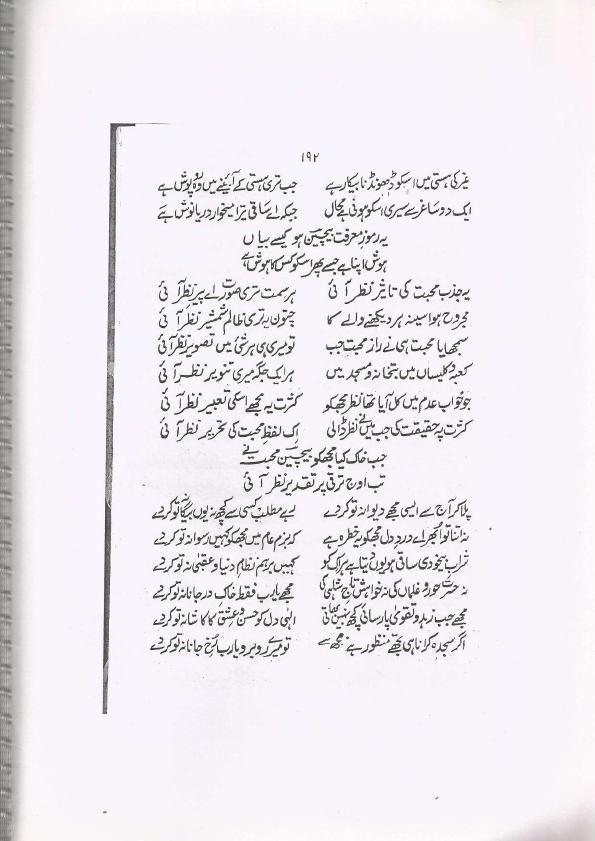 ۱۹۲
غیر کی ہستی میں اسکو ڈھونڈنا بیکار ہے جب تری ہستی کے آئینے میں وہ روپوش ہے
ایک دو ساغر سے سیری اسکو ہونی ہے محال جبکہ اے ساقی ترا میخوار دریا نوش ہے
یہ رموزِ معرفت بیچین ہو کیسے بیاں
ہوش اپنا ہے جسے پھر اسکو کس کا ہوش ہے
یہ جذب محبت کی تاثیر نظر آئی ہر سمت تری صورت اے پیر نظر آئی
مجروح ہوا سینہ ہر دیکھنے والے کا چتون یہ تری ظالم شمشیر نظر آئی
سمجھایا محبت ہی نے راز محبت جب تو میری ہی ہر شئی میں تصویر نظر آئی
کعبہ و کلیساں میں بتخانہ و مسجد میں ہر ایک جگہ میری تنویر نظر آئی
جو خواب عدم میں کل آیا تھا نظر مجھکو کثرت یہ مجھے اسکی تعبیر نظر آئی
کثرت پہ حقیقت کی جب میں نے نظر ڈالی اک لفظ محبت کی تحریر نظر آئی
جب خاک کیا مجھکو بیچین محبت نے
تب اوج ترقی پر تقدیر نظر آئی
پلا کر آج سے ایسی مجھے دیوانہ تو کر دے بے مطلب کسی سے کچھ نہ یوں بیگانہ تو کر دے
نہ اتنا تو ابھر اے درد دل مجھکو یہ خطرہ ہے کہ بزم عام میں مجھکو کہیں رسوا نہ تو کر دے
شراب بیخودی ساقی جو یوں دیتا ہے ہر اک کو کہیں برہم نظام دنیا و عقبیٰ نہ تو کر دے
نہ حسرت حور و غلماں کی نہ خواہش تاج شاہی کی مجھے یارب فقط خاک در جانانہ تو کر دے
مجھے جب زہد و تقویٰ پارسائی کچھ نہیں بھاتی الٰہی دل کو حسن و عشق کا کاشانہ تو کر دے
اگر سجدہ کرانا ہی تجھے منظور ہے مجھ سے تو میرے روبرو یارب رخ جانانہ تو کر دے